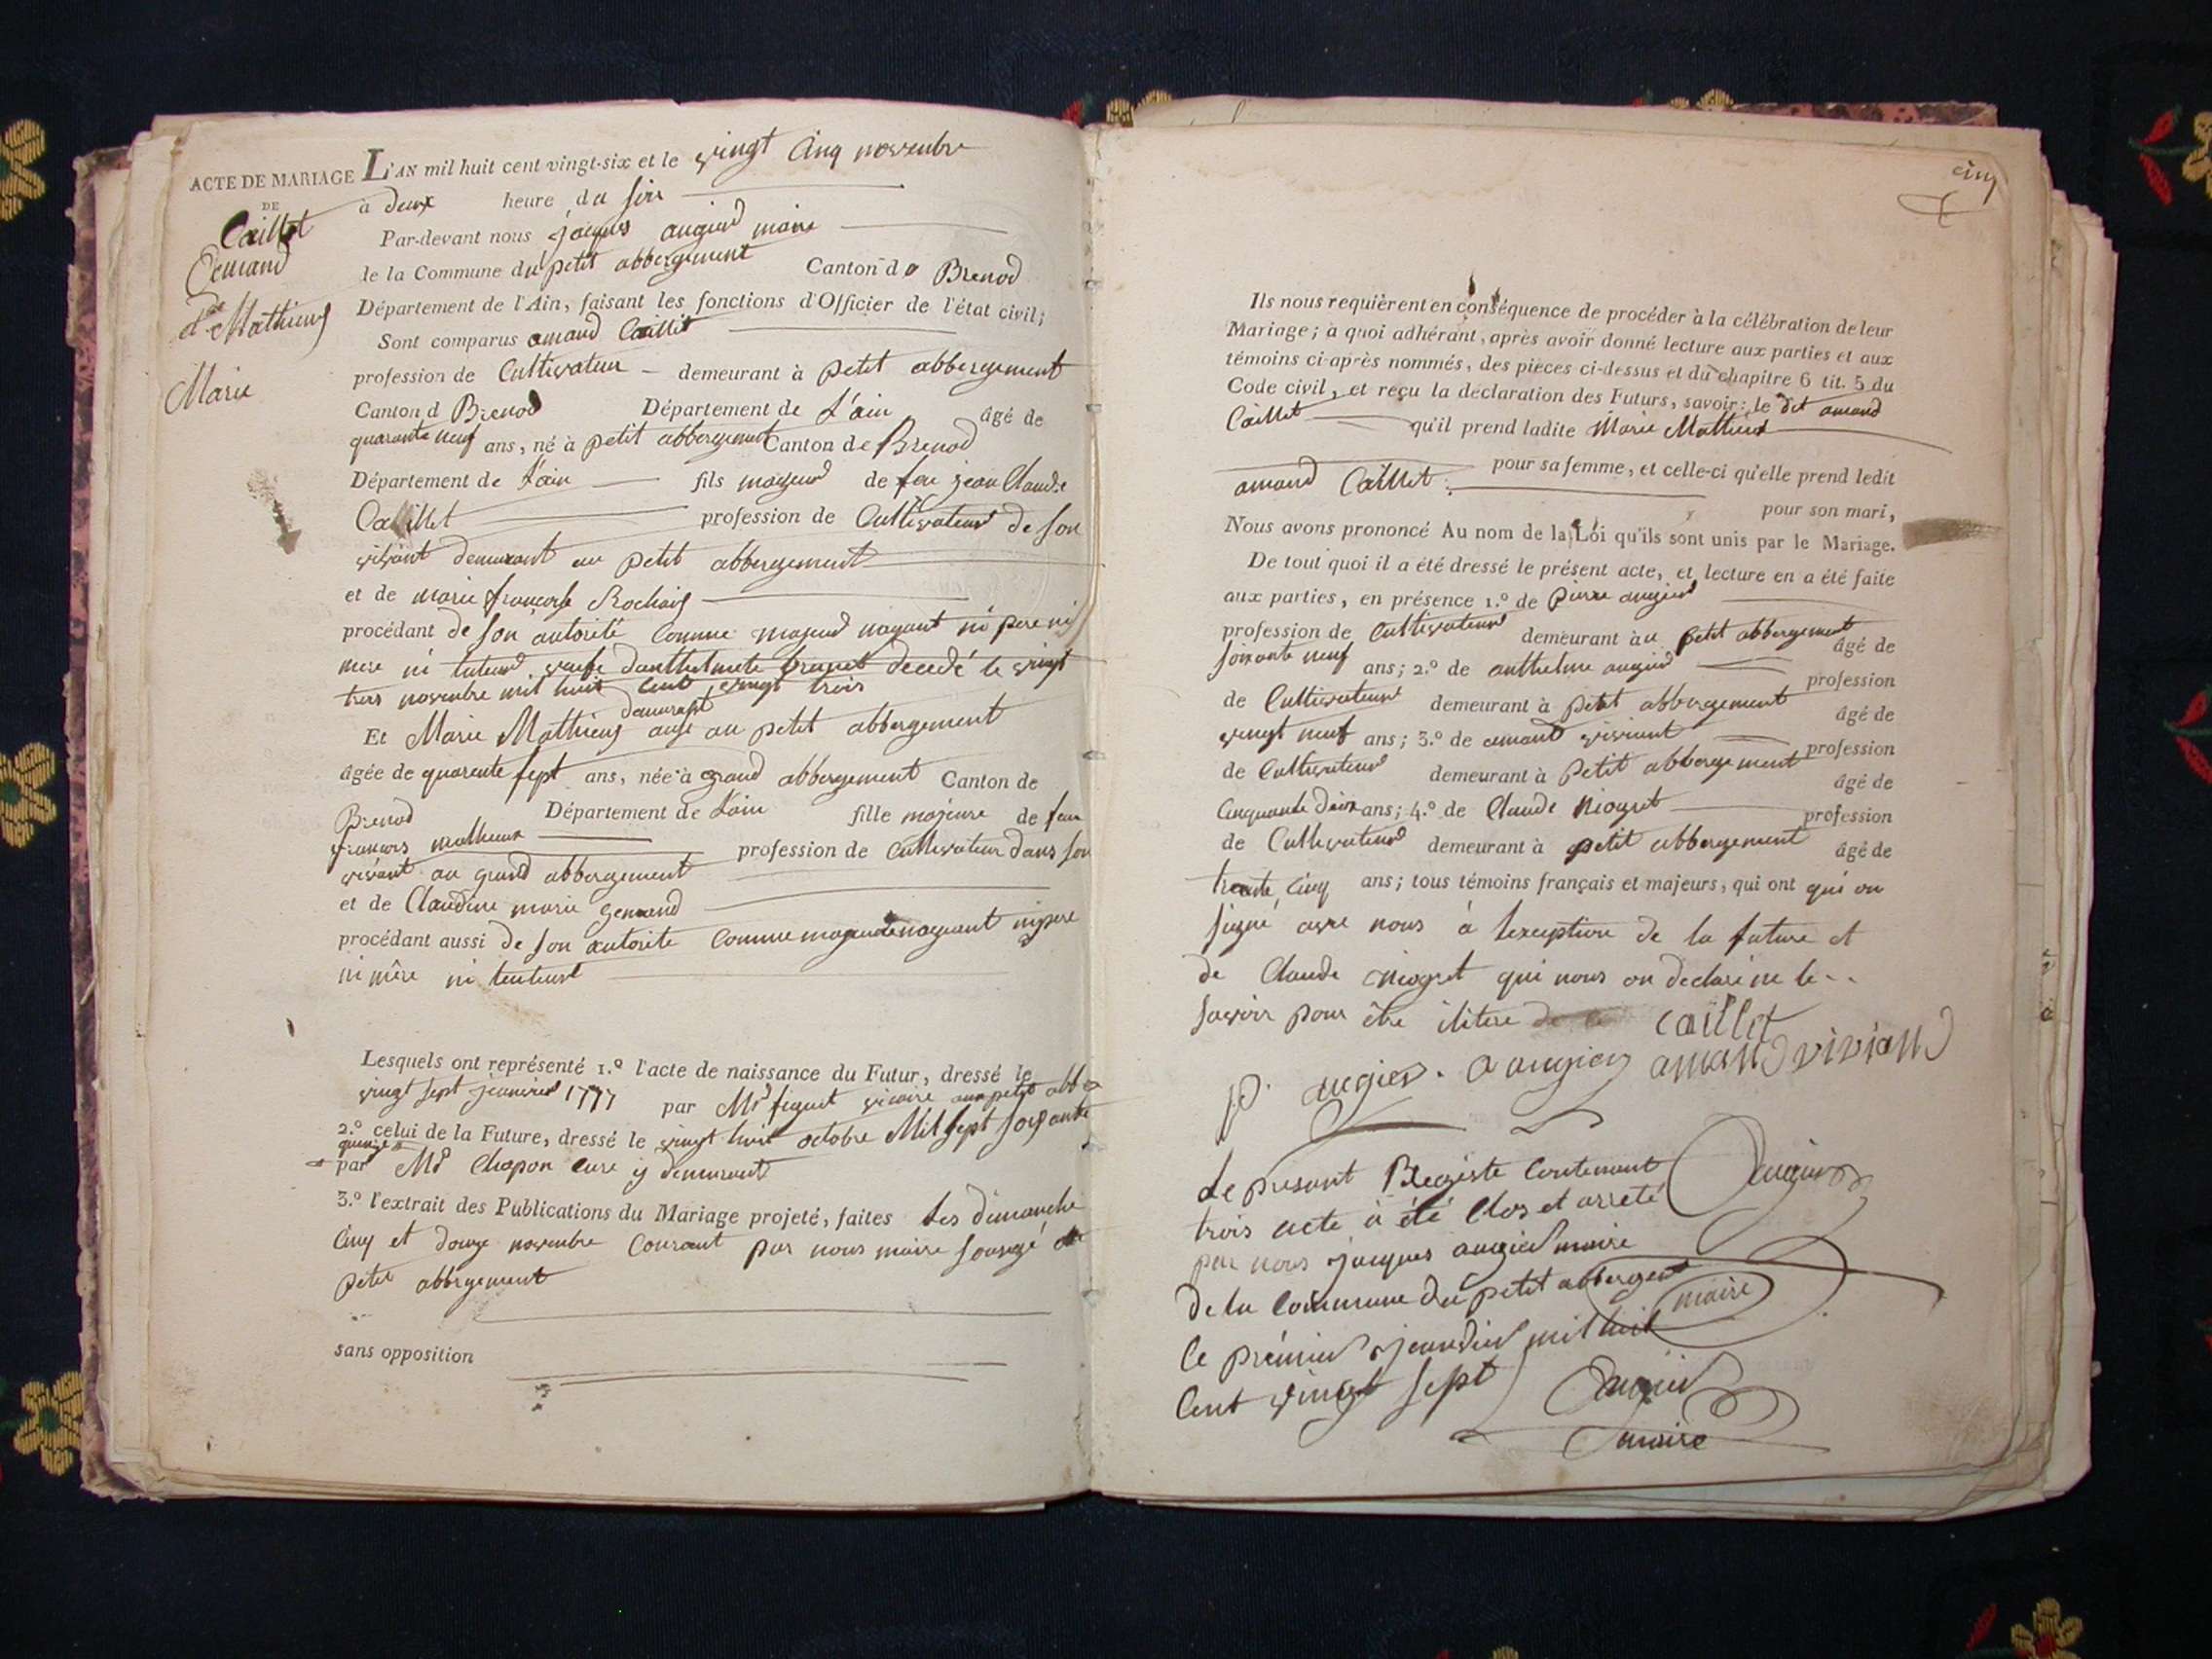 ACTE DE MARIAGE
DE
Caillet
Amand
et Mathieux
Marie
L'AN mil huit cent vingt-six et le vingt Cinq novembre
à deux heure du soir
Par-devant nous jacques augier maire
de la Commune du petit abbergement Canton de Brenod
Département de l'Ain, faisant les fonctions d'Officier de l'état civil;
Sont comparus amand Caillet
profession de Cultivateur demeurant à petit abbergement
Canton d Brenod Département de L'ain âgé de
quarante neuf ans, né à petit abbergement Canton de Brenod
Département de L'ain fils majeur de feu jean Claude
Caillet profession de Cultivateur de son
vivant demeurant au petit abbergement
et de marie françoise Rochaix
procédant de son autorité Comme majeur nayant ni pere ni
mere ni tuteur veufe danthelmete decedé le vingt
trois novembre mil huit Cent vingt trois
Et Marie Mathieux demeurant ausi au petit abbergement
âgée de quarente sept ans, née à grand abbergement Canton de
Brenod Département de L'ain fille majeure de feu
françois mathieux profession de Cultivateur dans son
vivant au grand abbergement
et de Claudine marie
procédant aussi de son autorite Comme majeure nayant ni pere
ni mère ni tuteur
Lesquels ont représenté 1.º l'acte de naissance du Futur, dressé le
vingt sept janvier 1777 par Mr vicaire au petit abb
2.º celui de la Future, dressé le vingt huit octobre Mil sept soixante
quinze
par Mr Chapon cure y demeurant
3.º l'extrait des Publications du Mariage projeté, faites Les dimanche
Cinq et douze novembre Courant par nous maire
petit abbergement
sans opposition
cinq
Ils nous requièrent en conséquence de procéder à la célébration de leur
Mariage; à quoi adhérant, après avoir donné lecture aux parties et aux
témoins ci-après nommés, des pièces ci-dessus et du chapitre 6 tit. 5 du
Code civil, et reçu la déclaration des Futurs, savoir: le dit amand
Caillet qu'il prend ladite Marie Mathieux
pour sa femme, et celle-ci qu'elle prend ledit
amand Caillet
pour son mari,
Nous avons prononcé Au nom de la Loi qu'ils sont unis par le Mariage.
De tout quoi il a été dressé le présent acte, et lecture en a été faite
aux parties, en présence 1.º de Pierre augier
profession de Cultivateur demeurant à u petit abbergement âgé de
soixante neuf ans; 2.º de anthelme augier profession
de Cultivateur demeurant à petit abbergement âgé de
vingt neuf ans; 3.º de amand viviant profession
de Cultivateur demeurant à Petit abbergement âgé de
Cinquante deux ans; 4.º de Claude Niogret profession
de Cultivateur demeurant à petit abbergement âgé de
trente Cinq ans; tous témoins français et majeurs, qui ont qui on
signé avec nous à lexception de la future et
de Claude niogret qui nous on declaré ne le
savoir pour être ilitere
caillet
P. augier. a augier amand vivian
Le present Registe Contenant
trois acte à été Clos et arreté
par nous jacques augier maire
de la Commune du petit abbergent
le premier janvier mil huit
Cent vingt sept
Augier
maire
Augier
maire